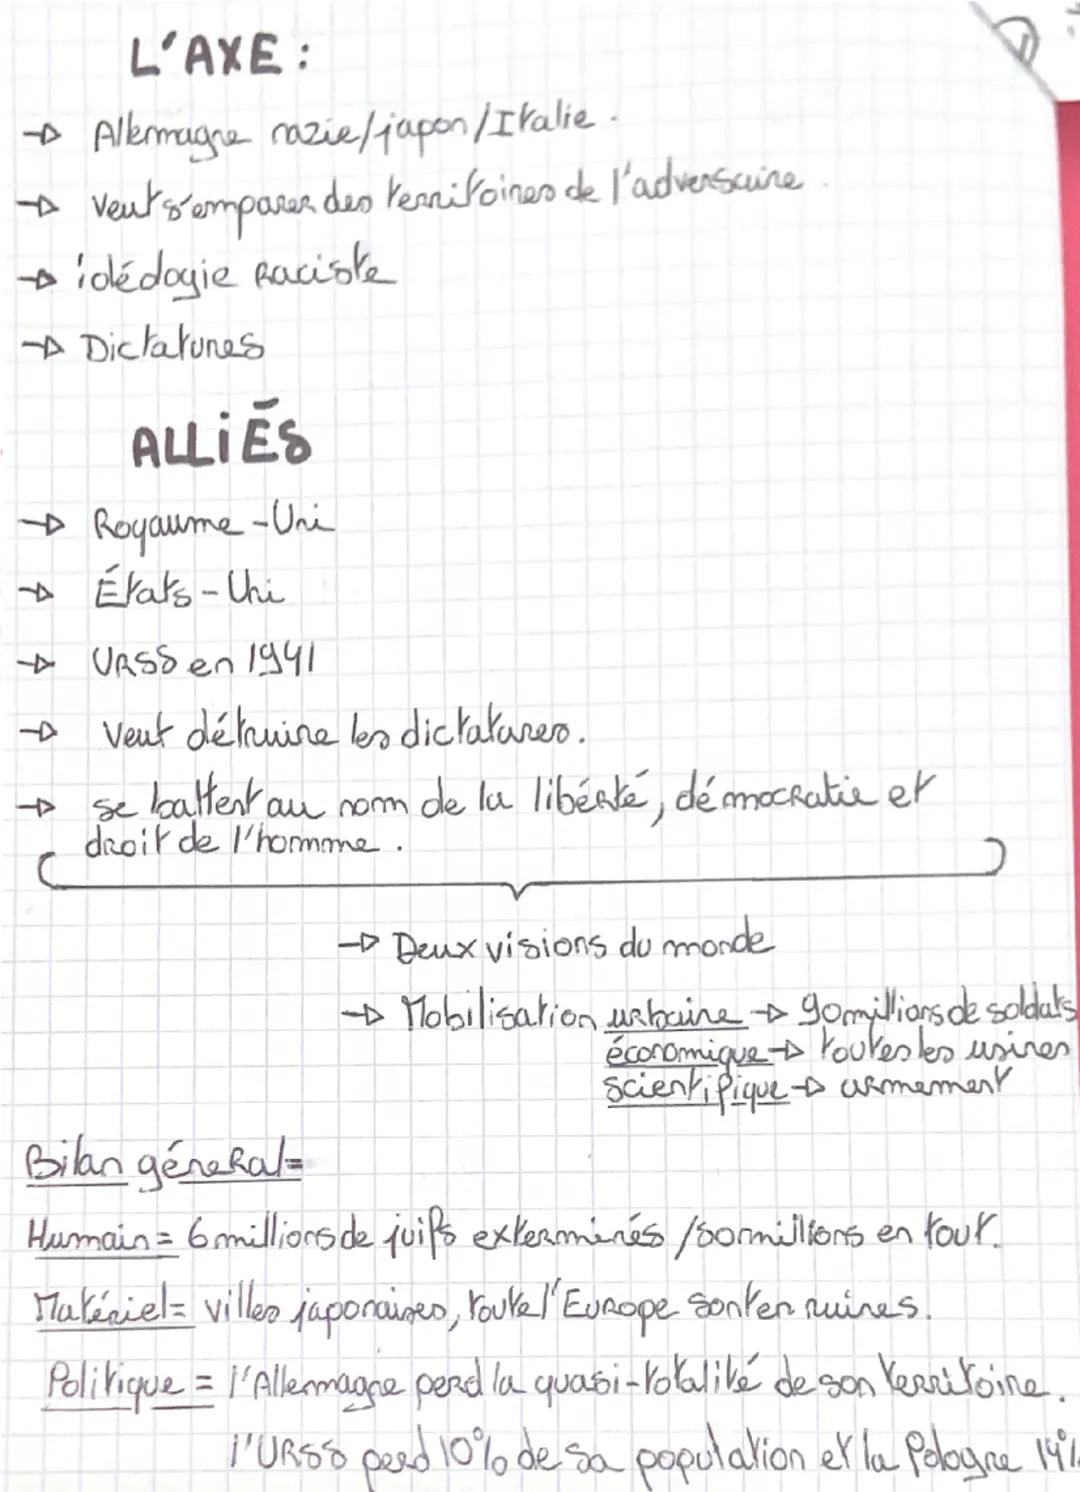 L'AXE :
→ Allemagne nazie/japon/Italie.
→ Veut s'emparer des territoires de l'adversaire.
→ idédogie Raciste
→ Dictatures
ALLiÉS
→ Royaume-Uni
→ États-Uni
→ URSS en 1941
→ Veut détruire les dictatures.
→ se battent au nom de la libérté, démocratie et
droit de l'homme.
→ Deux visions du monde
→ Mobilisation urbaine → 90 millions de soldats
économique → toutes les usines
scientifique → armement
Bilan géneral=
Humain = 6 millions de juifs exterminés / 50 millions en tout.
Matériel= villes japonaises, toute l'Europe sont en ruines.
Politique = l'Allemagne perd la quasi-totalité de son territoire.
l'URSS perd 10% de sa population et la Pologne 14%